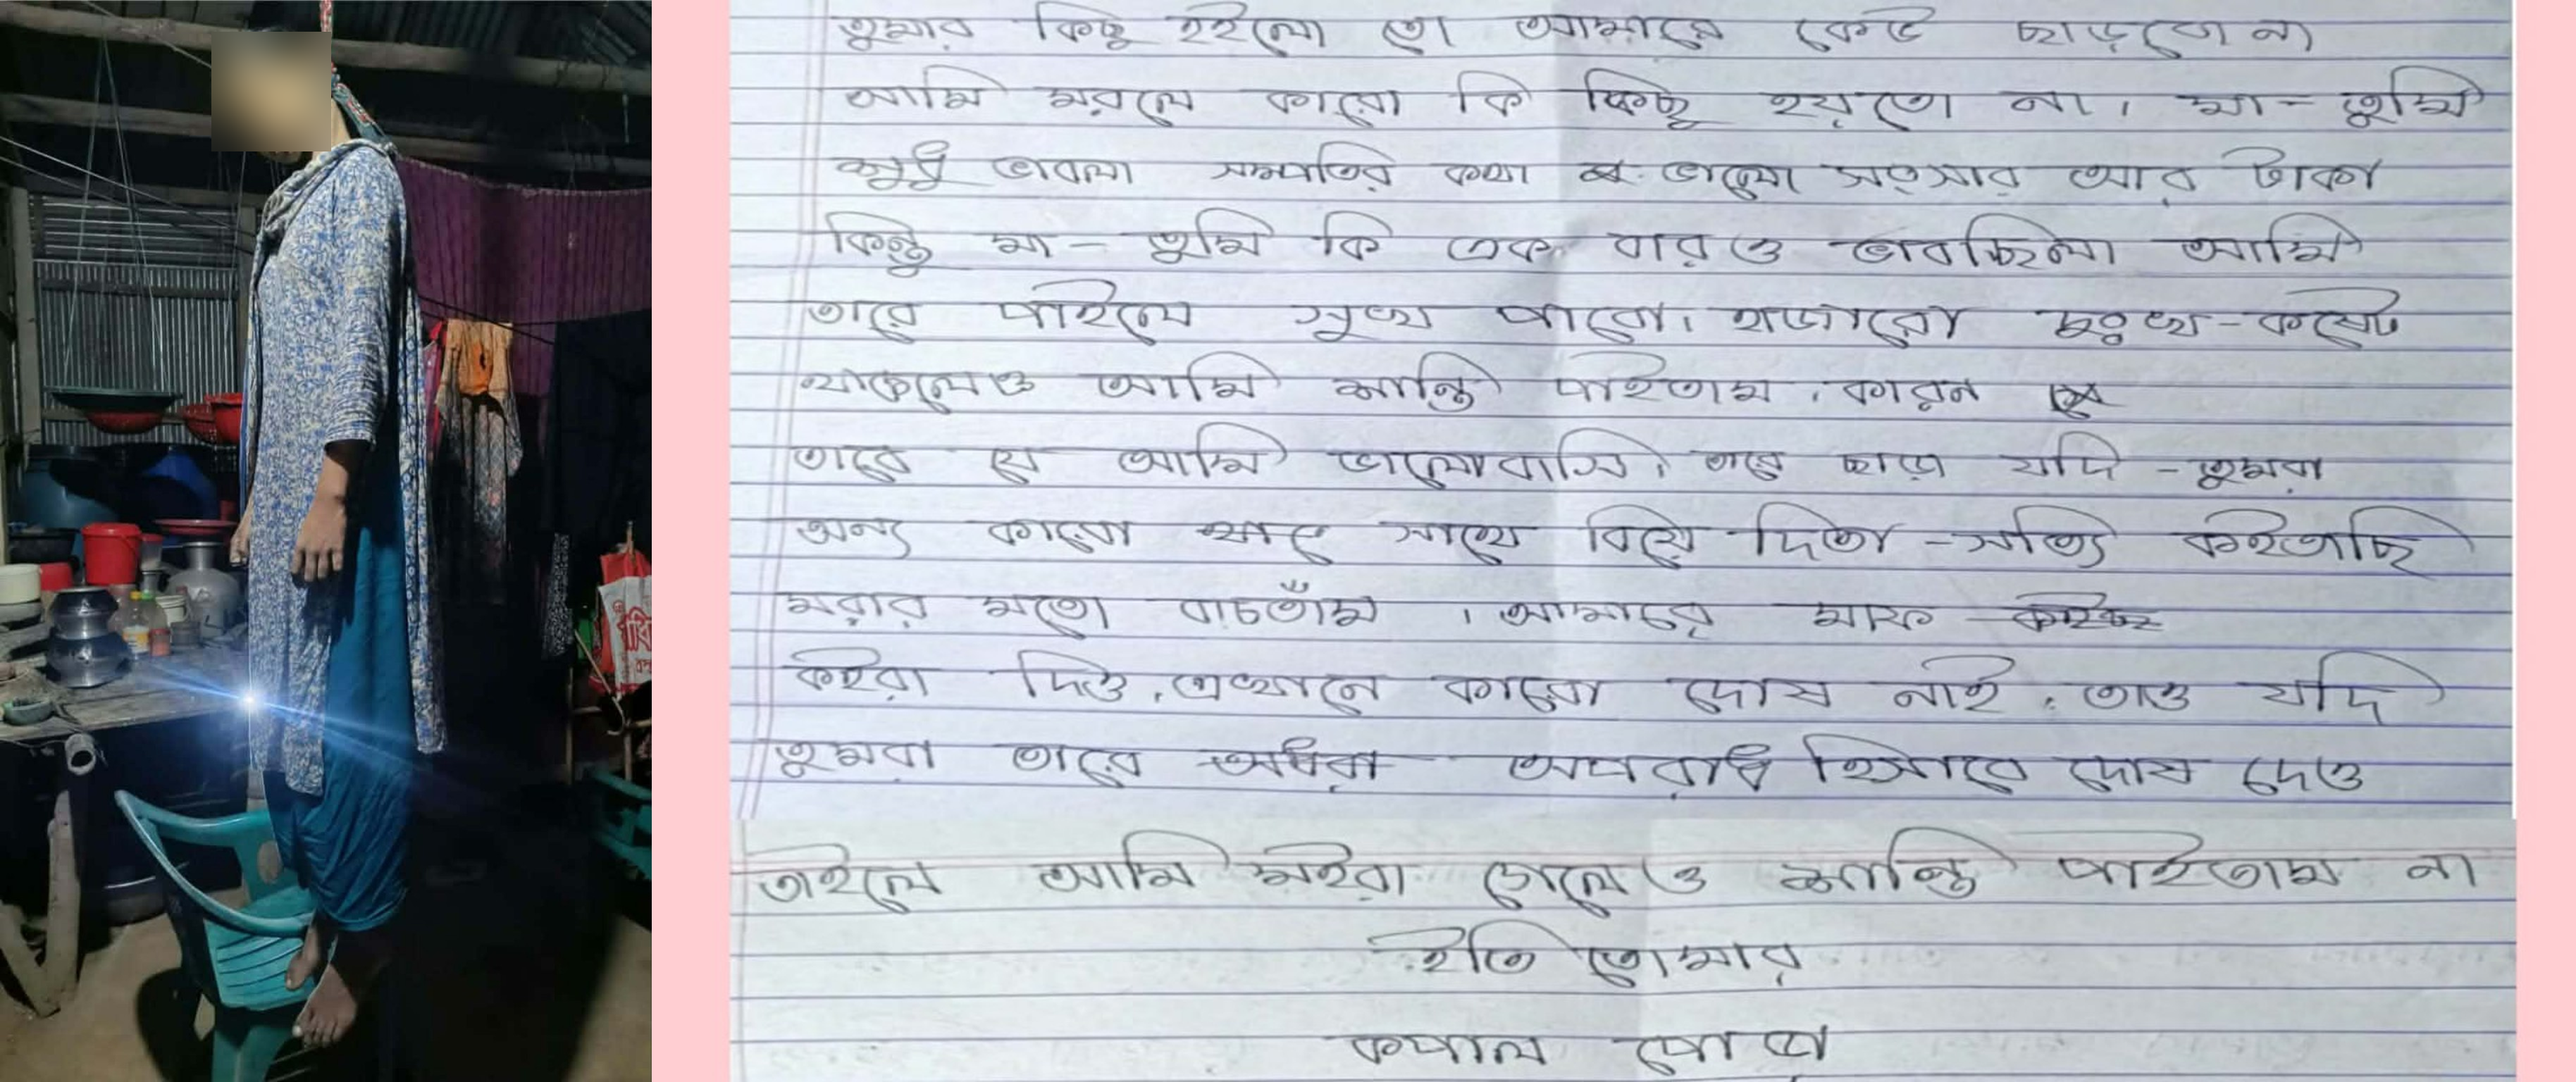 তুমার কিছু হইলো তো আমারে কেউ ছাড়তো না
আমি মরলে কারো কি কিছু হয়তো না। মা- তুমি
শুধু ভাবলা সম্পতির কথা ভালো সংসার আর টাকা
কিন্তু মা- তুমি কি এক বারও ভাবছিলা আমি
তারে পাইলে সুখ পাবো। হাজারো দুঃখ-কষ্টে
থাকলেও আমি শান্তি পাইতাম। কারন
তারে যে আমি ভালোবাসি। তারে ছাড়া যদি -তুমরা
অন্য কারো সাথে বিয়ে দিতা -সত্যি কইতাছি
মরার মতো বাচতাঁম। আমারে মাফ
কইরা দিও। এখানে কারো দোষ নাই। তাও যদি
তুমরা তারে অপরাধি হিসাবে দোষ দেও
তাইলে আমি মইরা গেলেও শান্তি পাইতাম না
ইতি তোমার
কপাল পোড়া